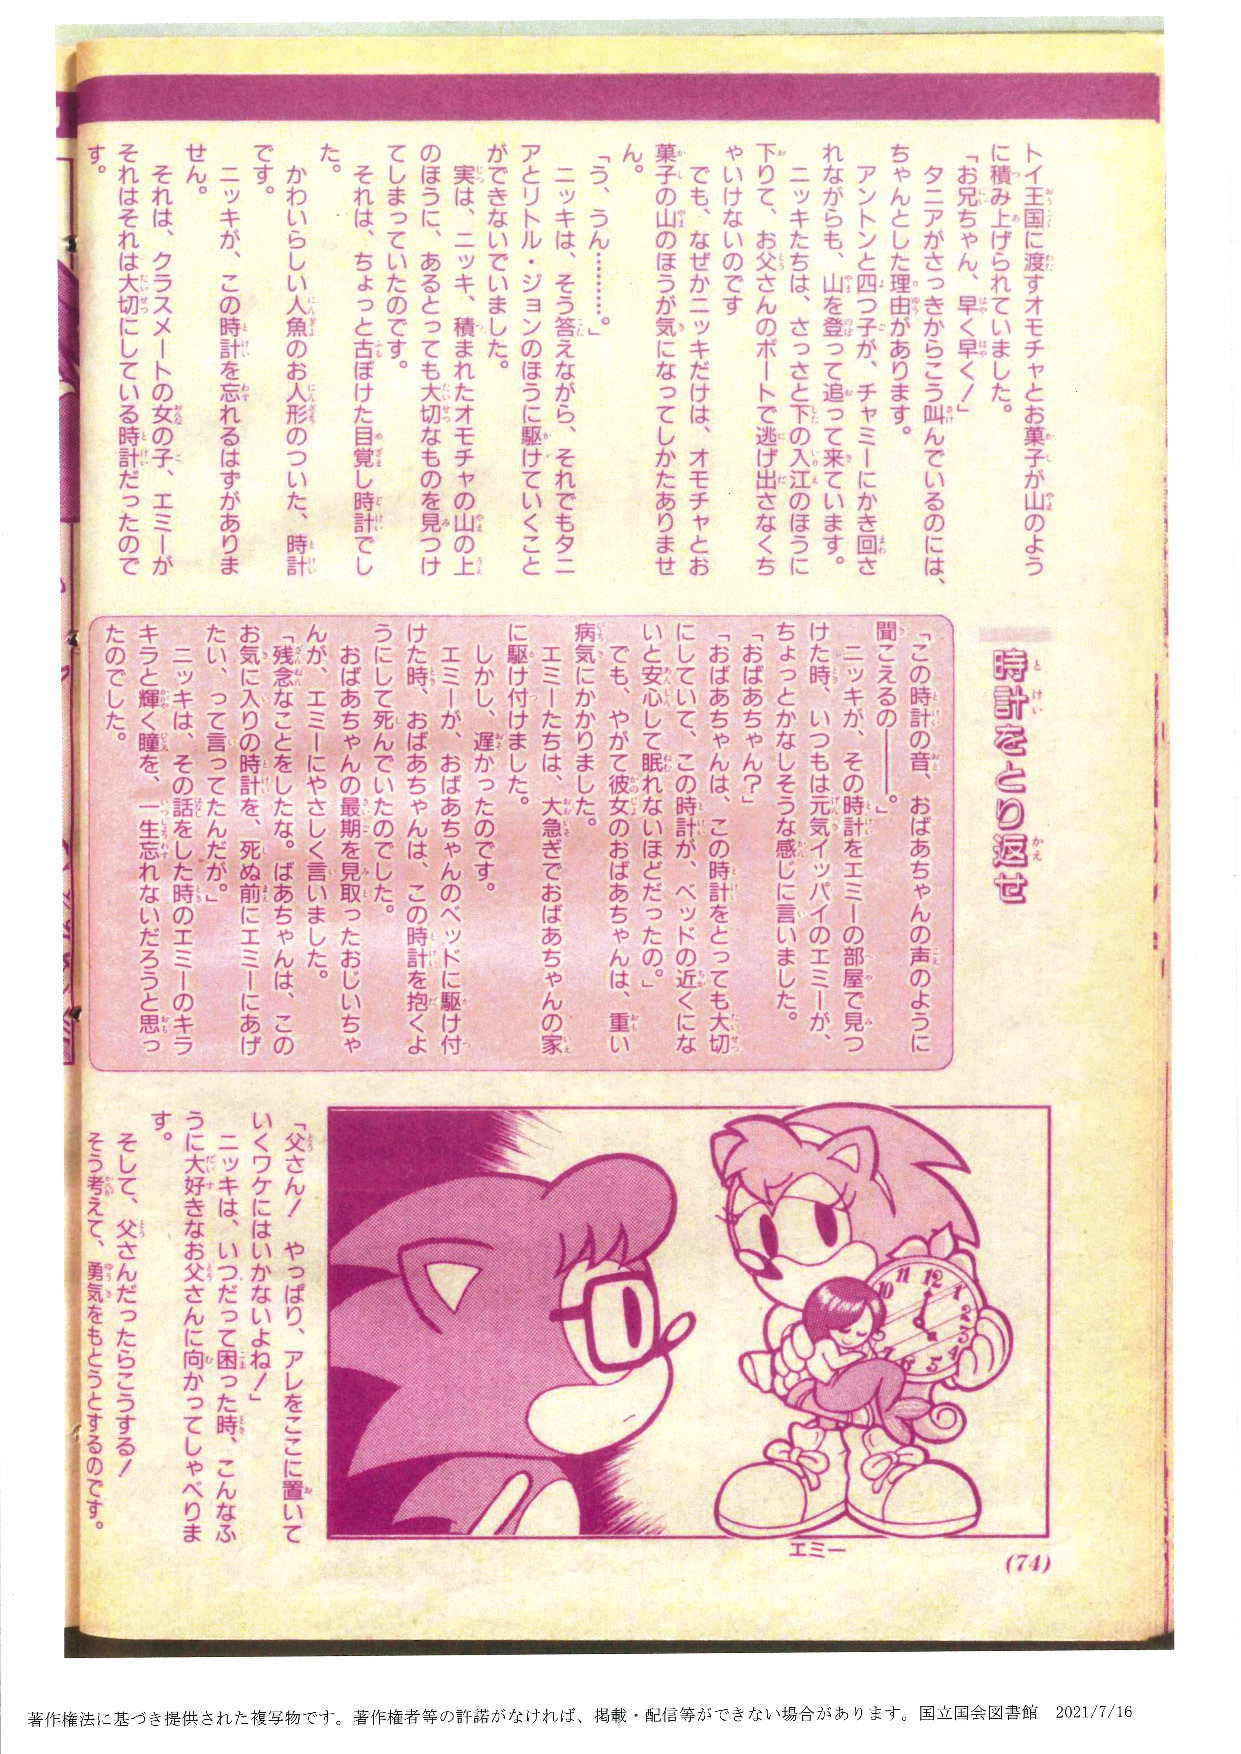 トイ王国に渡すオモチャとお菓子が山のよう
に積み上げられていました。
「お兄ちゃん、早く早く!」
タニアがさっきからこう叫んでいるのには、
ちゃんとした理由があります。
アントンと四つ子が、チャミーにかき回さ
れながらも、山を登って追って来ています。
ニッキたちは、さっさと下の入江のほうに
下りて、お父さんのボートで逃げ出さなくち
ゃいけないのです
でも、なぜかニッキだけは、オモチャとお
菓子の山のほうが気になってしかたありませ
ん。
「う、うん………。」
ニッキは、そう答えながら、それでもタニ
アとリトル・ジョンのほうに駆けていくこと
ができないでいました。
実は、ニッキ、積まれたオモチャの山の上
のほうに、あるとっても大切なものを見つけ
てしまっていたのです。
それは、ちょっと古ぼけた目覚し時計でし
た。
かわいらしい人魚のお人形のついた、時計
です。
ニッキが、この時計を忘れるはずがありま
せん。
それは、クラスメートの女の子、エミーが
それはそれは大切にしている時計だったので
す。
時計をとり返せ
「この時計の音、おばあちゃんの声のように
聞こえるの――。」
ニッキが、その時計をエミーの部屋で見つ
けた時、いつもは元気イッパイのエミーが、
ちょっとかなしそうな感じに言いました。
「おばあちゃん?」
「おばあちゃんは、この時計をとっても大切
にしていて、この時計が、ベッドの近くにな
いと安心して眠れないほどだったの。」
でも、やがて彼女のおばあちゃんは、重い
病気にかかりました。
エミーたちは、大急ぎでおばあちゃんの家
に駆け付けました。
しかし、遅かったのです。
エミーが、おばあちゃんのベッドに駆け付
けた時、おばあちゃんは、この時計を抱くよ
うにして死んでいたのでした。
おばあちゃんの最期を見取ったおじいちゃ
んが、エミーにやさしく言いました。
「残念なことをしたな。ばあちゃんは、この
お気に入りの時計を、死ぬ前にエミーにあげ
たい、って言ってたんだが。」
ニッキは、その話をした時のエミーのキラ
キラと輝く瞳を、一生忘れないだろうと思っ
たのでした。
エミー
「父さん! やっぱり、アレをここに置いて
いくワケにはいかないよね!」
ニッキは、いつだって困った時、こんなふ
うに大好きなお父さんに向かってしゃべりま
す。
そして、父さんだったらこうする!
そう考えて、勇気をもとうとするのです。
(74)
著作権法に基づき提供された複写物です。著作権者等の許諾がなければ、掲載・配信等ができない場合があります。国立国会図書館 2021/7/16